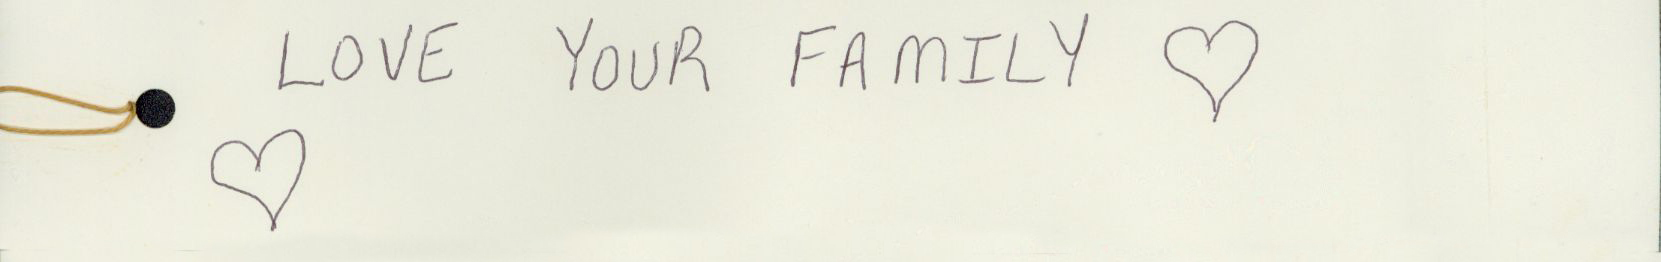 LOVE YOUR FAMILY